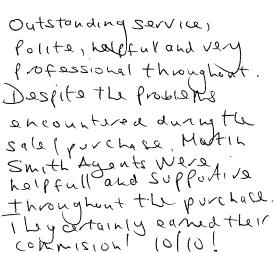 Outstanding service,
Polite, helpfull and very
professional throughout.
Despite the problems
encountered during the
sale/purchase, Martin
Smith Agents were
helpfull and supportive
throughout the purchase.
They certainly earned their
commision! 10/10!